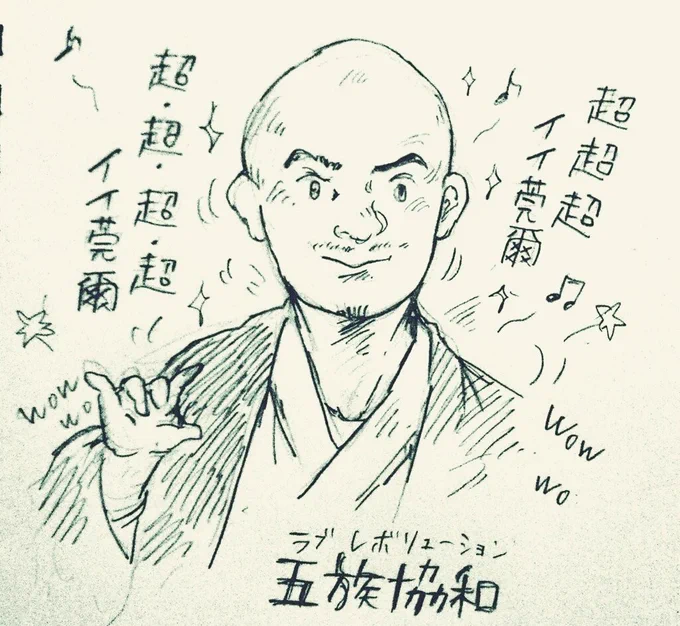 超超超
イイ莞爾
超・超・超・超
イイ莞爾
wow
wo
wow
wo
ラブレボリューション
五族協和